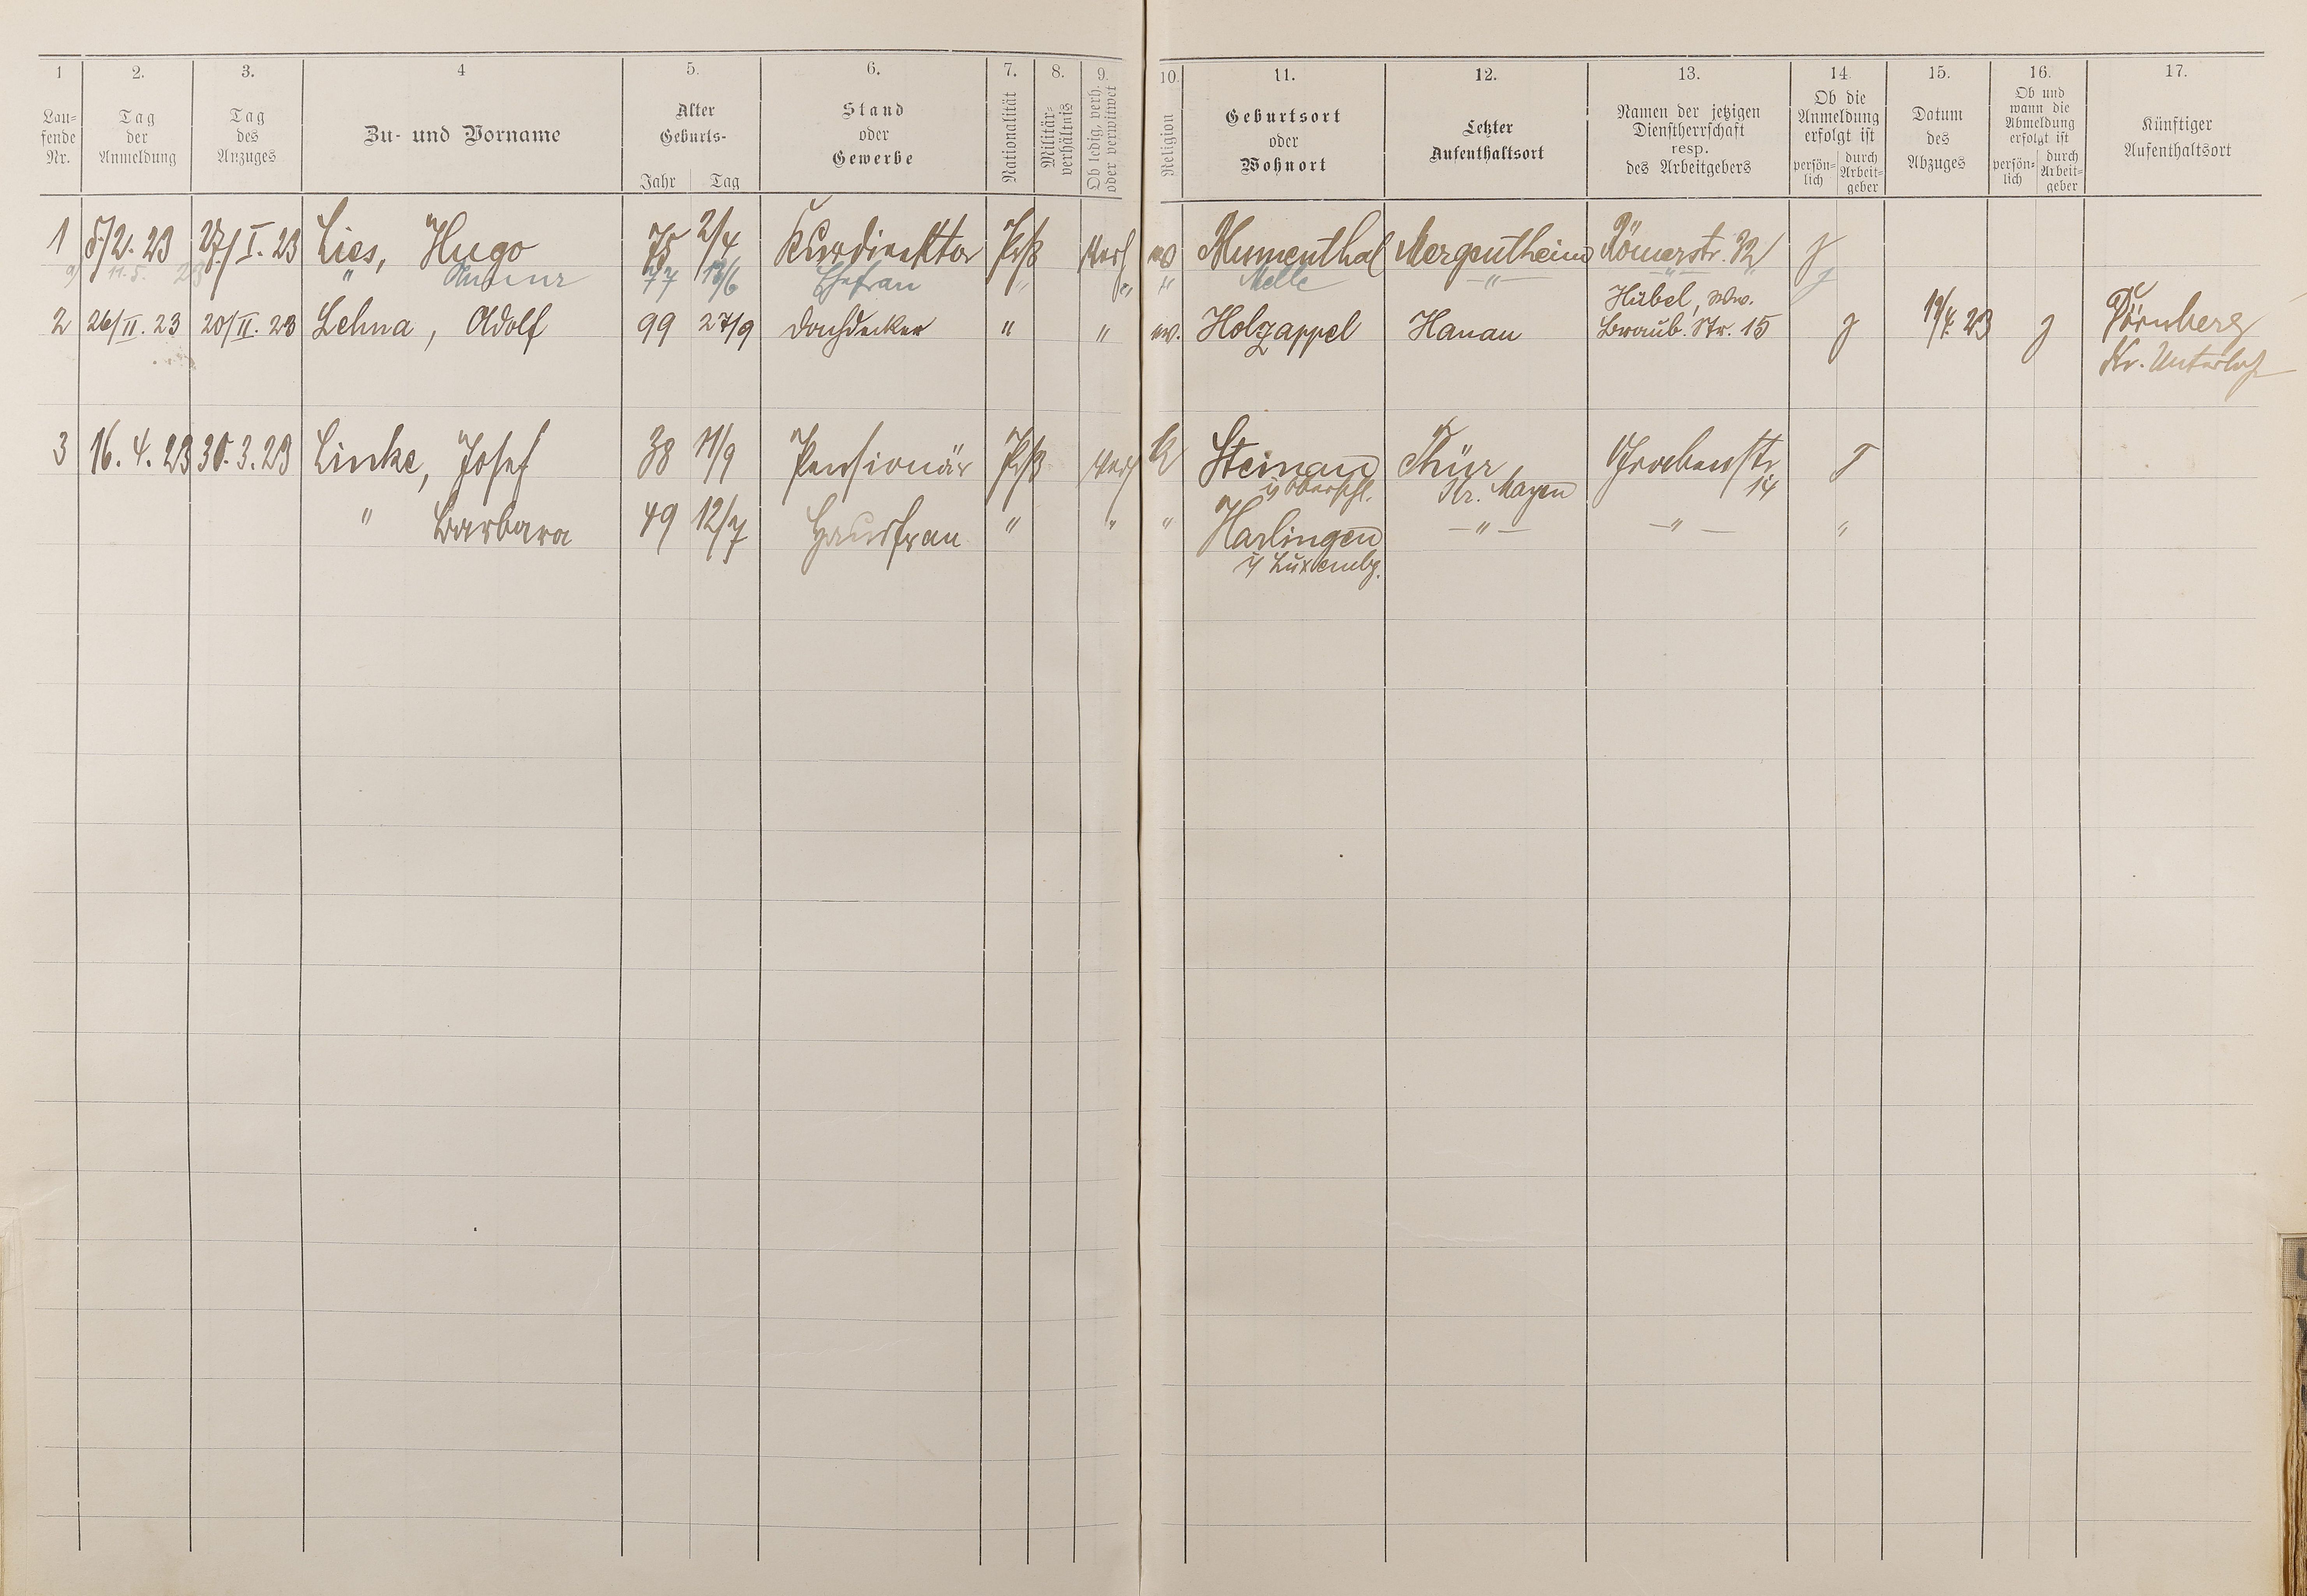 1 2. 3. 4 5. 6. 7. 8. 9. 10. 11. 12. 13. 14. 15. 16. 17.
Lau-
fende
Nr.
Tag
der
Anmeldung
Tag
des
Anzuges
Zu- und Vorname
Alter
Geburts-
Jahr Tag
Stand
oder
Gewerbe
Nationalität
Militär-
verhältnis
Ob ledig, verh.
oder verwitwet
Religion
Geburtsort
oder
Wohnort
Letzter
Aufenthaltsort
Namen der jetzigen
Dienstherrschaft
resp.
des Arbeitgebers
Ob die
Anmeldung
erfolgt ist
persön-
lich
durch
Arbeit-
geber
Datum
des
Abzuges
Ob und
wann die
Abmeldung
erfolgt ist
persön-
lich
durch
Arbeit-
geber
Künftiger
Aufenthaltsort
1 5/2. 23 27/I. 23 Lies, Hugo 75 2/4 Kurdirektor Prß verh ev Mumenthal Mergentheim Römerstr. 32
11. 5. 23 " 77 13/6 Ehefrau " " " Melle -"- -"-
2 26/II. 23 20/II. 23 Lehna, Adolf 99 27/9 Dachdecker " " ev. Holzappel Hanau Hübel, Ww.
Braub. Str. 15 19/4. 23 Dörnberg
Kr. Unterlah
3 16. 4. 23 30. 3. 23 Linke, Josef 38 11/9 Pensionär Prß verh K Steinau
i/ Oberschl. Thür,
Kr. Mayen Grabenstr
14
" Barbara 49 12/7 Hausfrau " " " Harlingen
i/ Luxembg. -"- -"- "